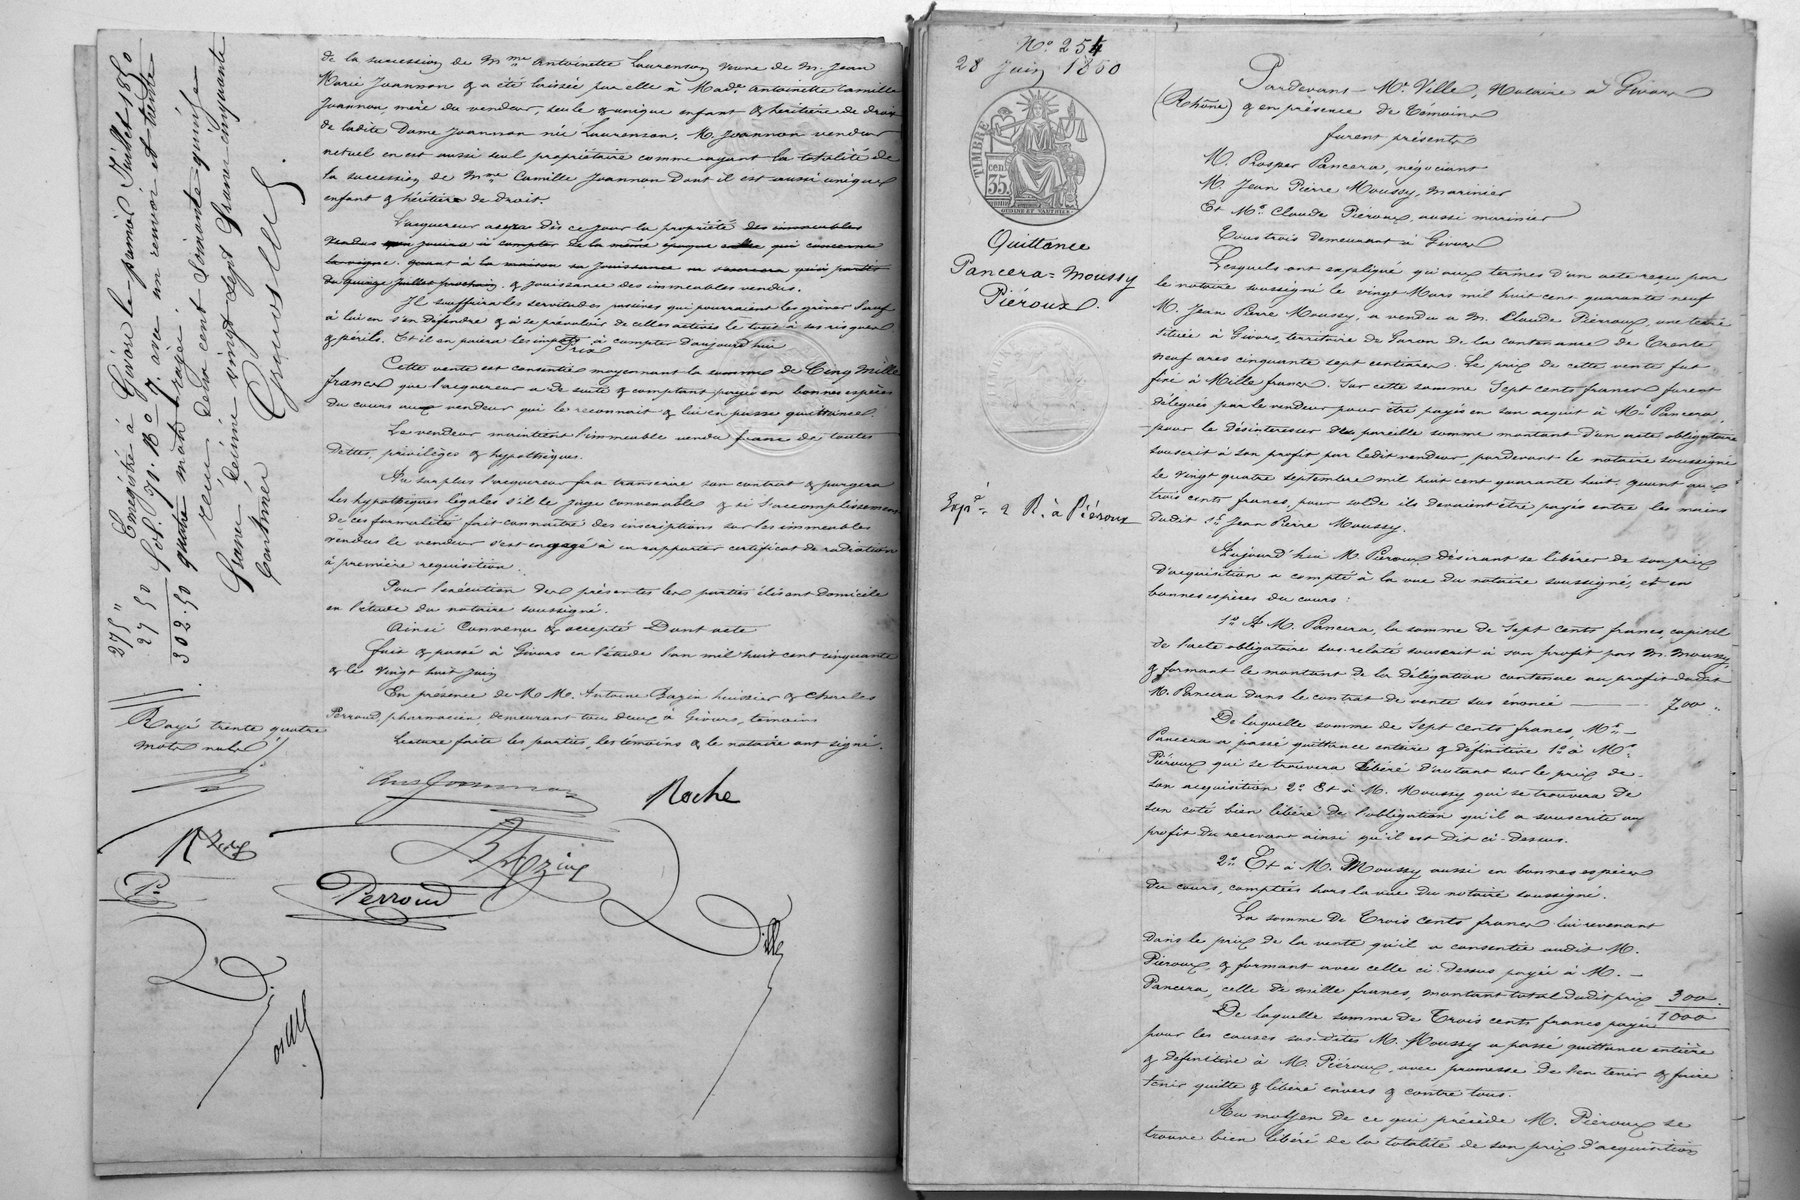 de la sucession de Mme Antoinette Laurenson veuve de M. Jean
Marie Joannon & a été laissée par elle à Made Antoinette Camille
Joannon, mère du vendeur, seule & unique enfant & héritière de droit
de ladite Dame Joannon née Laurenson. M. Joannon vendeur
actuel en est aussi seul propriétaire comme ayant la totalité de
la succession de Mme Camille Joannon dont il est aussi unique
enfant & héritier de droit
L'acquereur aura dès ce jour la propriété des immeubles
vendus pour jouira à compter de la même époque celle qui concerne
la vigne. quant à la maison sa jouissance ne s'exercera qu'à partir
du quinze juillet prochain & jouissance des immeubles vendus.
Il souffrira les servitudes passives qui pourraient les grèver sauf
à lui en s'en défendre & à se prévaloir de celles actives le tout à ses risques
& périls. Et il en paiera les impôts à compter d'aujourd'hui
Prix
Cette vente est consentie moyennant la somme de Cinq Mille
francs que l'acquereur a de suite & comptant payés en bonnes espèces
du cours aux vendeur qui le reconnait & lui en passe quittance.
Le vendeur maintient l'immeuble vendu franc de toutes
dettes, privilèges & hypothèques.
Au surplus l'acquereur fera transcrire son contrat & purgera
les hypothèques légales s'il le juge convenable & si l'accomplissement
de ces formalités fait connaître des inscriptions sur les immeubles
vendus le vendeur s'est engagé à en rapporter certificat de radiation
à première requisition.
Pour l'exécution des présentes les parties élisent domicile
en l'étude du notaire soussigné.
Ainsi Convenu & accepté Dont acte
fait & passé à Givors en l'étude l'an mil huit cent cinquante
& le vingt huit juin
En présence de M.M. Antoine Bazin huissier & Charles
Perroud, pharmacien, demeurant tou deux à Givors, témoins
Lecture faite les parties, les témoins & le notaire ont signé.
Roche
Bazin
Perroud
Ville
Enregistré à Givors le premier Juillet 1850
fol. 90. R° C 7. avec un renvoi et trente
quatre mots rayés.
reçu deux cent soixante quinze
francs, décime vingt sept francs cinquante
centimes
275 "
27 50
302 50
Rayé trente quatre
mots nuls
N° 254
28 Juin 1850
TIMBRE
35 cen.
Quittance
Pancera-Moussy
Piéroux
Expé 2 R. à Piéroux
Pardevant Me Ville, Notaire à Givors
(Rhône) & en présence de Témoins
furent présents
M. Prosper Pancera, négociant
M. Jean Pierre Moussy, marinier
Et Mr Claude Piéroux, aussi marinier
Tous trois demeurant à Givors
Lesquels ont expliqué qu'aux termes d'un acte reçu par
le notaire soussigné le vingt Mars mil huit cent quarante neuf
M. Jean Pierre Moussy, a vendu a M. Claude Pierroux, une terre
située à Givors, territoire de Garon de la contenance de Trente
neuf ares cinquante sept centiares. Le prix de cette vente fut
fixé à Mille francs. Sur cette somme Sept cents francs furent
délegués par le vendeur pour être payés en son acquit à Mr Pancera,
pour le désintéresser de pareille somme montant d'un acte obligatoire
souscrit à son profit par ledit vendeur, pardevant le notaire soussigné
le vingt quatre septembre mil huit cent quarante huit. quant aux
trois cents francs, pour solde ils devaient être payés entre les mains
dudit Sr Jean Pierre Moussy.
Aujourd'hui M. Piéroux désirant se libérer de son prix
d'acquisition a compté à la vue du notaire soussigné, & en
bonnes espèces du cours :
1° A M. Pancera, la somme de Sept cents francs, capital
de l'acte obligatoire sus relaté souscrit à son profit par M. Moussy,
& formant le montant de la délégation contenue au profit dudit
M. Pancera dans le contrat de vente sus énoncé — 700 "
De laquelle somme de Sept cents francs, Mr
Pancera a passé quittance entière & définitive 1° à Mr
Piéroux qui se trouvera libéré d'autant sur le prix de
son acquisition 2° Et à M. Moussy qui se trouvera de
son coté bien libéré de l'obligation qu'il a souscrite au
profit du recevant ainsi qu'il est dit ci-dessus.
2° Et à M. Moussy aussi en bonnes espèces
du cours, comptées hors la vue du notaire soussigné.
La somme de Trois cents francs lui revenant
dans le prix de la vente qu'il a consentie audit M.
Piéroux, & formant avec celle ci-dessus payée à M.
Pancera, celle de mille francs, montant total dudit prix 300
1000
De laquelle somme de Trois cents francs payée
pour les causes sus-dites M. Moussy a passé quittance entière
& définitive à M. Piéroux, avec promesse de l'en tenir & faire
tenir quitte & libéré envers & contre tous.
Au moyen de ce qui précède M. Piéroux se
trouve bien libéré de la totalité de son prix d'acquisition